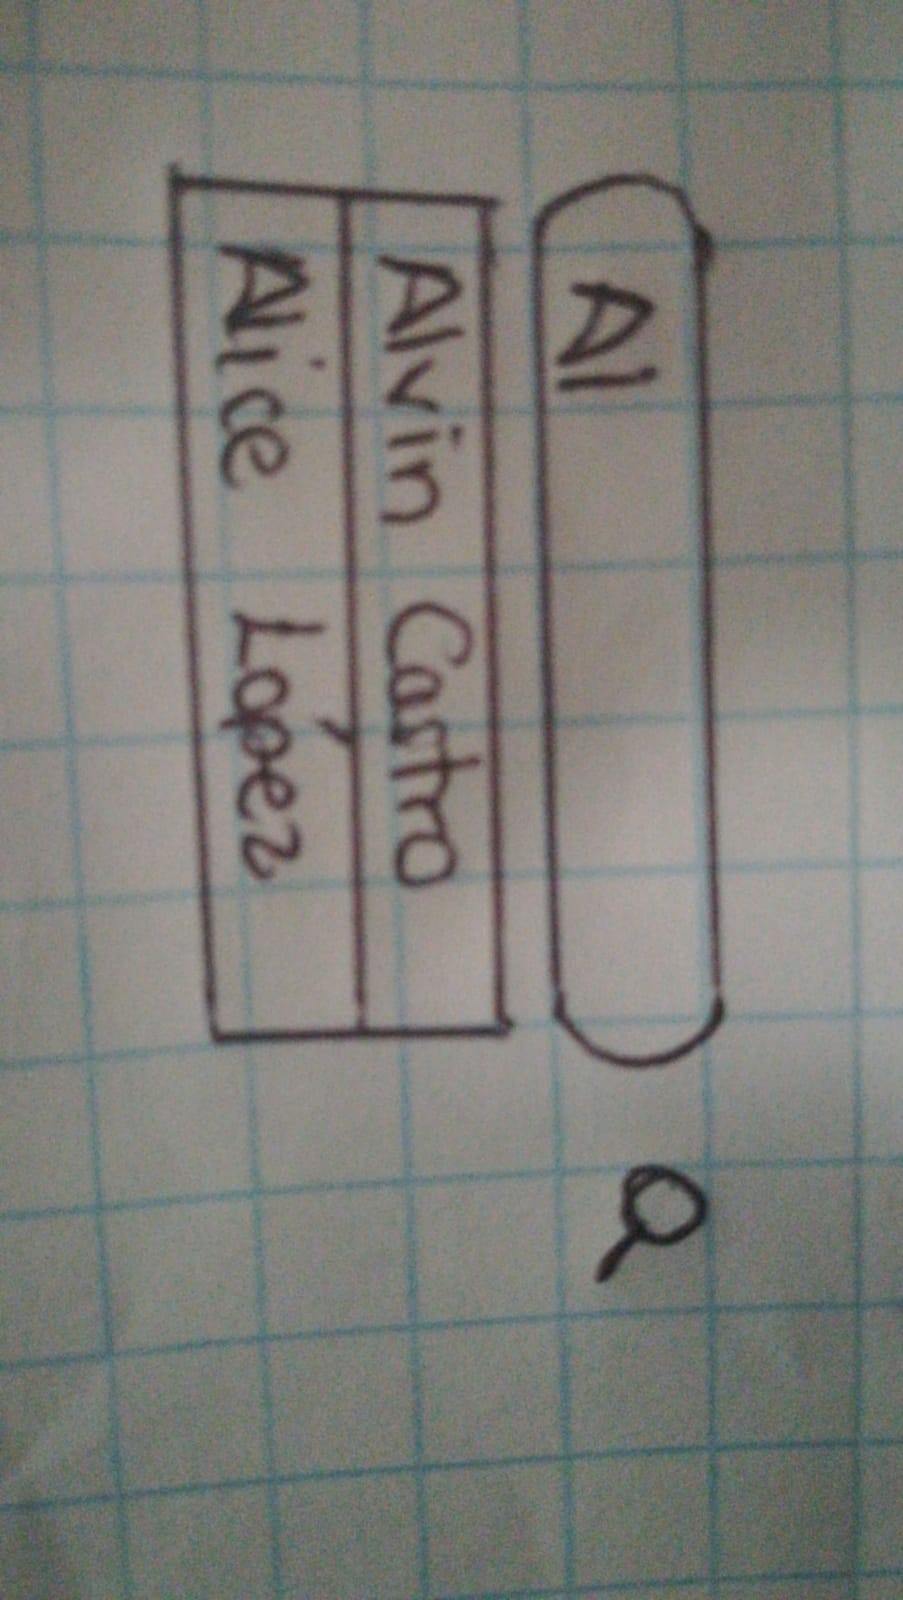 Al
Alvin Castro
Alice López